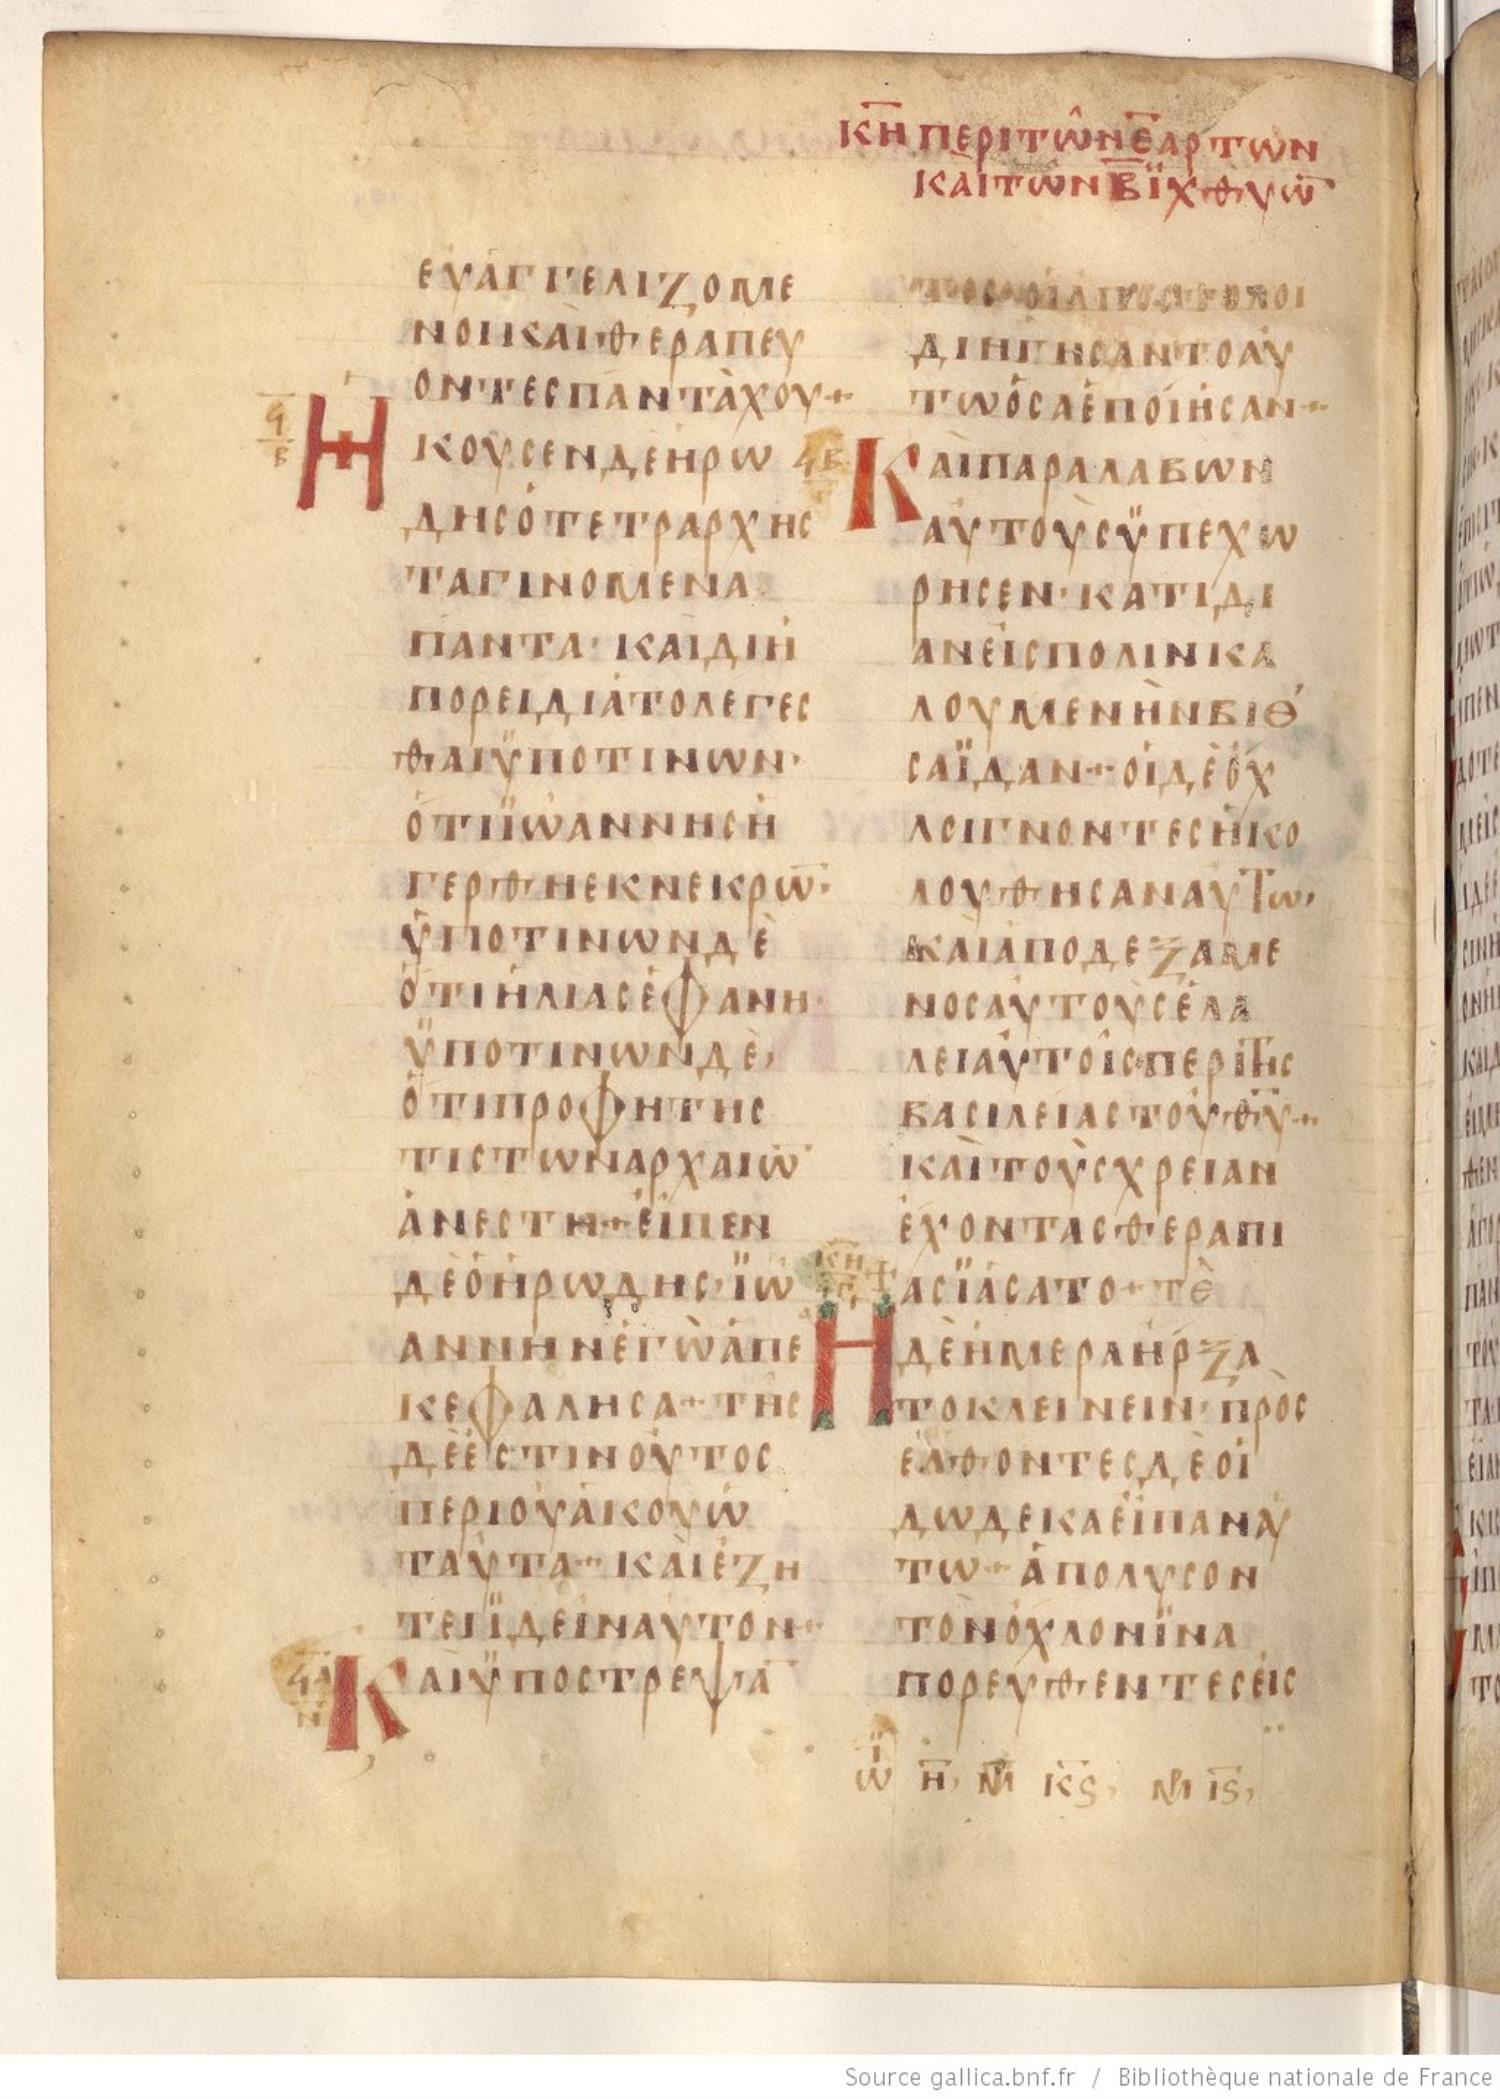 ΚΗ ΠΕΡΙΤΩΝ Ε ΑΡΤΩΝ
ΚΑΙΤΩΝ Β ΪΧΘΥΩ̅
ΕΥΑΓΓΕΛΙΖΟΜΕ
ΝΟΙΚΑΙΘΕΡΑΠΕΥ
ΟΝΤΕСΠΑΝΤΑΧΟΥ
ΗΚΟΥСΕΝΔΕΗΡΩ
ΔΗСΟΤΕΤΡΑΡΧΗС
ΤΑΓΙΝΟΜΕΝΑ
ΠΑΝΤΑ· ΚΑΙΔΙΗ
ΠΟΡΕΙΔΙΑΤΟΛΕΓΕС
ΘΑΙΫΠΟΤΙΝΩΝ·
ΟΤΙΪΩΑΝΝΗСΗ
ΓΕΡΘΗΕΚΝΕΚΡΩ̅·
ΫΠΟΤΙΝΩΝΔΕ
ΟΤΙΗΛΙΑСΕΦΑΝΗ
ΫΠΟΤΙΝΩΝΔΕ,
ΟΤΙΠΡΟΦΗΤΗС
ΤΙСΤΩΝΑΡΧΑΙΩ̅
ΑΝΕСΤΗ+ΕΙΠΕΝ
ΔΕΟΗΡΩΔΗС·ΪΩ
ΑΝΝΗΝΕΓΩΑΠΕ
ΚΕΦΑΛΗСΑ+ΤΗС
ΔΕΕСΤΙΝΟΥΤΟС
ΠΕΡΙΟΥΑΚΟΥΩ
ΤΑΥΤΑ+ΚΑΙΕΖΗ
ΤΕΙΪΔΕΙΝΑΥΤΟΝ+
ϞΑ ΚΑΙΫΠΟСΤΡΕΨΑ̅
ΤΕСΟΙΑΠΟСΤΟΛΟΙ
ΔΙΗΓΗСΑΝΤΟΑΥ
ΤΩΟСΑΕΠΟΙΗСΑΝ+
ϞΒ ΚΑΙΠΑΡΑΛΑΒΩΝ
ΑΥΤΟΥСΫΠΕΧΩ
ΡΗСΕΝ·ΚΑΤΙΔΙ
ΑΝΕΙСΠΟΛΙΝΚΑ
ΛΟΥΜΕΝΗΝΒΙΘ
СΑΪΔΑΝ+ΟΙΔΕΟΧ
ΛΟΙΓΝΟΝΤΕСΗΚΟ
ΛΟΥΘΗСΑΝΑΥΤΩ,
ΚΑΙΑΠΟΔΕΞΑΜΕ
ΝΟСΑΥΤΟΥСΕΛΑ
ΛΕΙΑΥΤΟΙСΠΕΡΙΤΗС
ΒΑСΙΛΕΙΑСΤΟΥΘ̅Υ̅+
ΚΑΙΤΟΥСΧΡΕΙΑΝ
ΕΧΟΝΤΑСΘΕΡΑΠΙ
ΑСΪΑСΑΤΟ+ΤΕ
ΚΗ ΗΔΕΗΜΕΡΑΗΡΞΑ
ΤΟΚΛΕΙΝΕΙΝ·ΠΡΟС
ΕΛΘΟΝΤΕСΔΕΟΙ
ΔΩΔΕΚΑΕΙΠΑΝΑΥ
ΤΩ+ΑΠΟΛΥСΟΝ
ΤΟΝΟΧΛΟΝΪΝΑ
ΠΟΡΕΥΘΕΝΤΕСΕΙС
ΪΩ Η, Μ Κϛ, Μ Ιϛ,
Source gallica.bnf.fr / Bibliothèque nationale de France